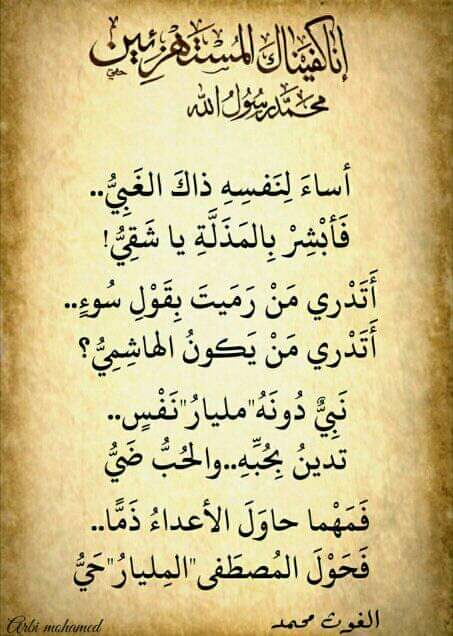 إنا كفيناك المستهزئين
محمد رسول الله
أساءَ لِنَفسِهِ ذاكَ الغَبِيُّ..
فَأبْشِرْ بِالمَذَلَّةِ يا شَقِيُّ!
أَتَدْري مَنْ رَمَيتَ بِقَوْلِ سُوءٍ..
أَتَدْري مَنْ يَكونُ الهاشِمِيُّ؟
نَبِيٌّ دُونَهُ "مليارُ" نَفْسٍ..
تدينُ بِحُبِّهِ..والحُبُّ ضَيُّ
فَمَهْما حاوَلَ الأعداءُ ذَمًّا..
فَحَوْلَ المُصطَفى "المِليارُ" حَيُّ
الغوث محمد
Arbi mohamed